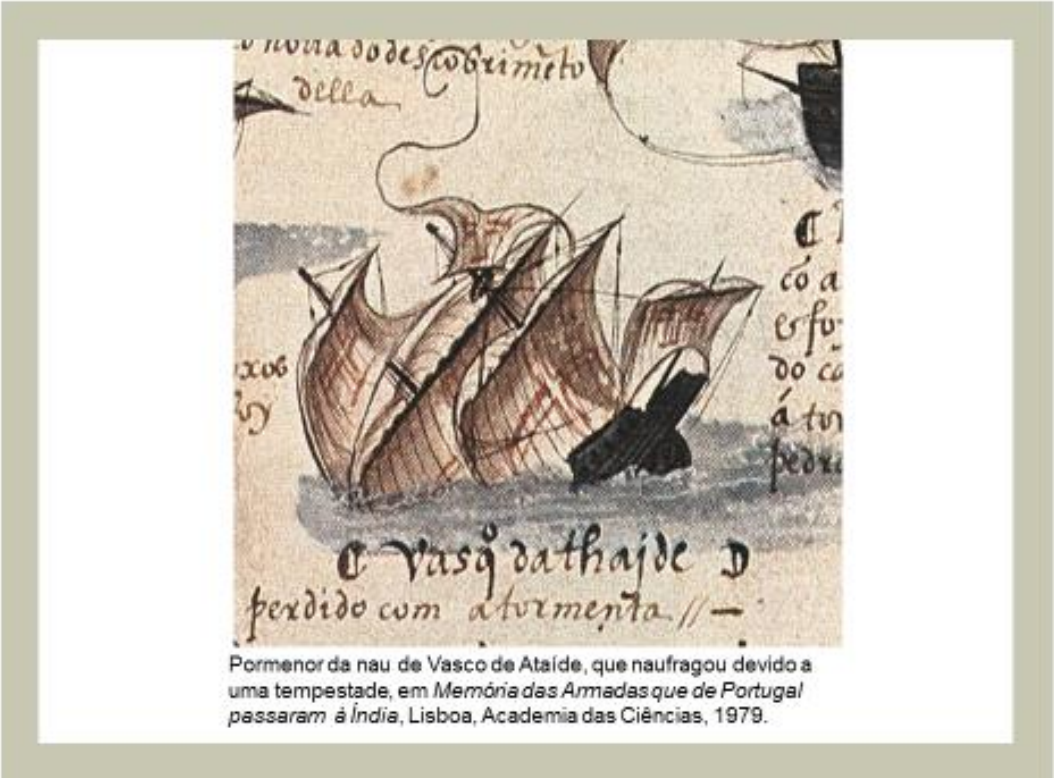 do descobrimẽto
della
C
cõ a
do ca
á tor
pedra
C Vasqº dathajde D
perdido com a tormenta //—
Pormenor da nau de Vasco de Ataíde, que naufragou devido a
uma tempestade, em Memória das Armadas que de Portugal
passaram à Índia, Lisboa, Academia das Ciências, 1979.